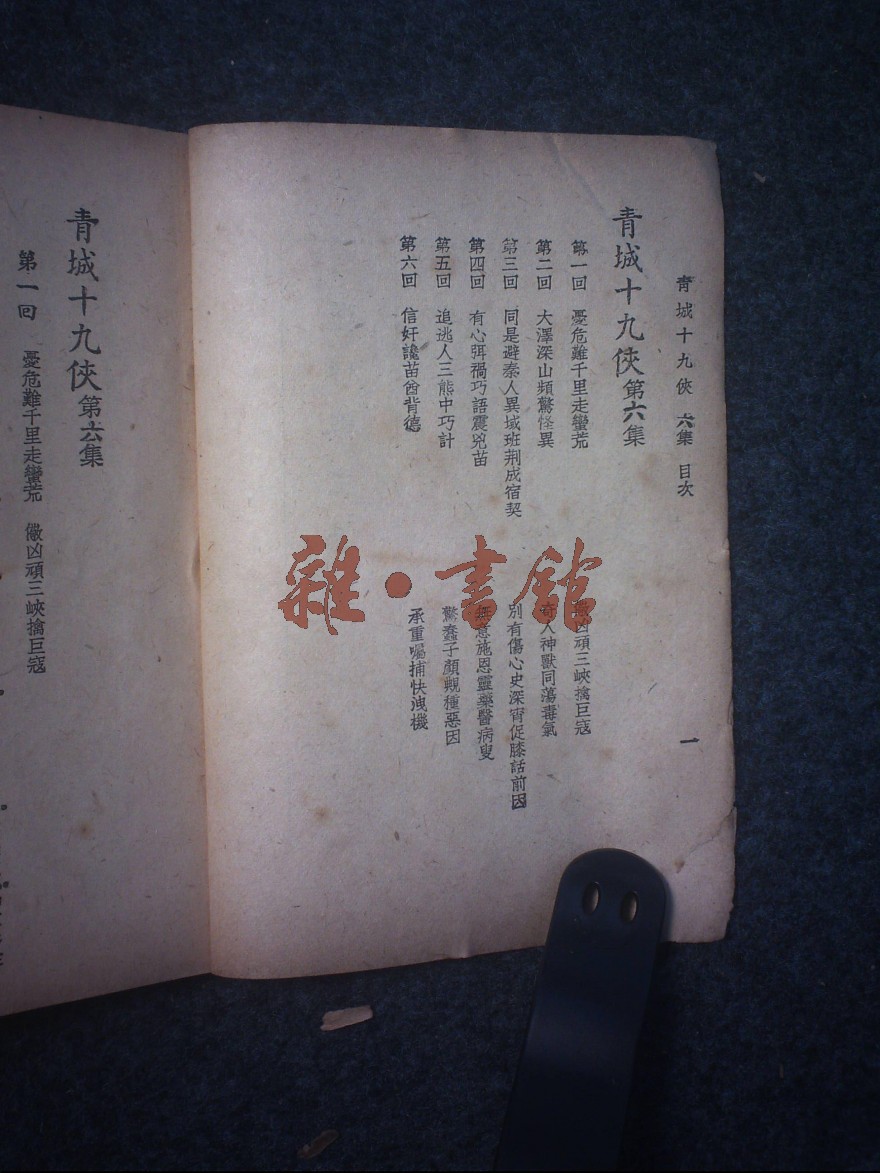 青城十九俠 六集 目次
一
青城十九俠第六集
第一回 憂危難千里走蠻荒 儆凶頑三峽擒巨寇
第二回 大澤深山頻驚怪異 奇人神獸同蕩毒氣
第三回 同是避秦人異域班荆成宿契 別有傷心史深宵促膝話前因
第四回 有心弭禍巧語震兇苗 無意施恩靈藥醫病叟
第五回 追逃人三熊中巧計 驚蠢子顏覥種惡因
第六回 信奸讒苗酋背德 承重囑捕快洩機
雜·書館
青城十九俠第六集
第一回 憂危難千里走蠻荒 儆凶頑三峽擒巨寇